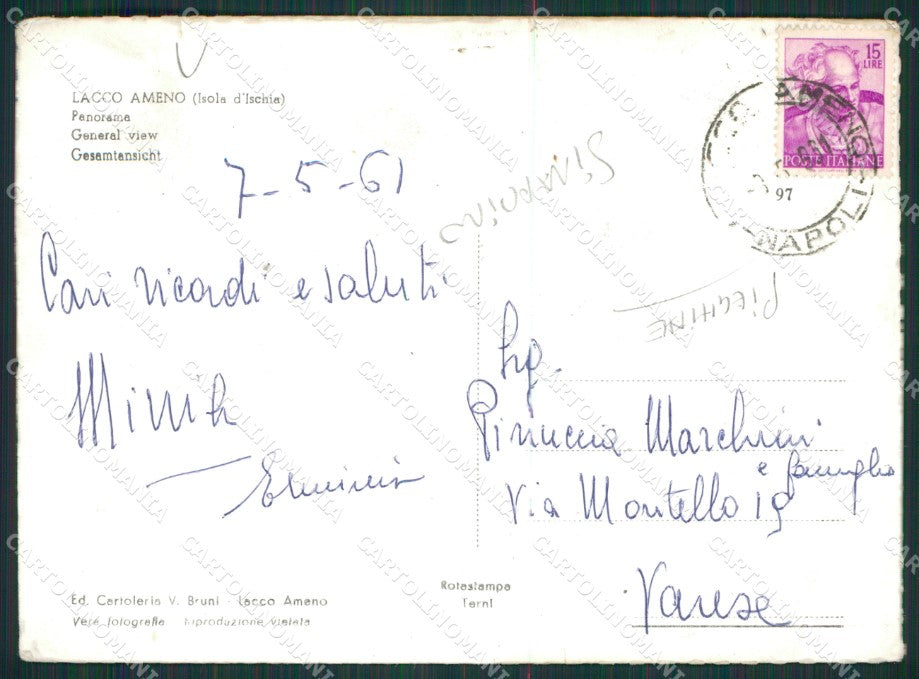 LACCO AMENO (Isola d'Ischia)
Panorama
General view
Gesamtansicht
7-5-61
Cari ricordi e saluti
Ed. Cartoleria V. Bruni - Lacco Ameno
Vera fotografia - riproduzione vietata
Rotostampa
Terni
15
LIRE
POSTE ITALIANE
AMENO
97
NAPOLI
PIEGHINE
Sig.
Pinuccia Marchini
e famiglia
Via Montello 19
Varese
CARTOLINOMANIA